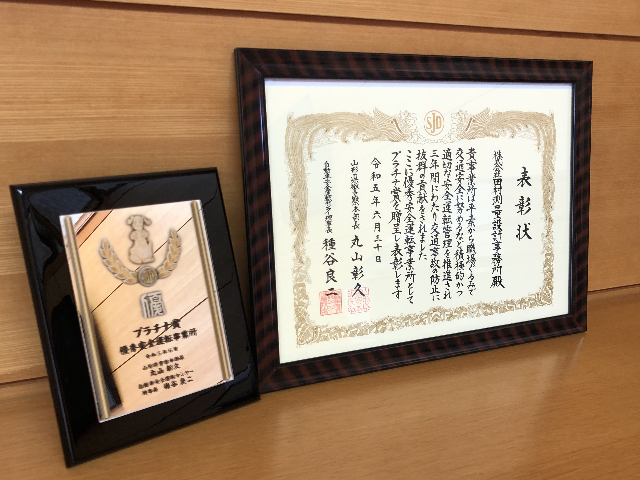 SJD
表彰状
株式会社田村測量設計事務所 殿
貴事業所は平素から職場ぐるみで
交通安全に努めるなど積極的かつ
適切な安全運転管理を推進され
三年間にわたり交通事故の防止に
抜群の貢献をされました
ここに優秀安全運転事業所として
プラチナ賞を贈呈し表彰します
令和五年六月三十日
山形県警察本部長 丸山彰久
自動車安全運転センター理事長 種谷良二
SJD
プラチナ賞
優秀安全運転事業所
山形県警察本部長
丸山彰久
自動車安全運転センター
理事長 種谷良二